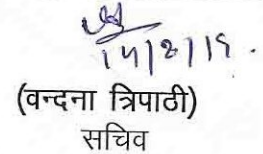 14/8/19.
(वन्दना त्रिपाठी)
सचिव